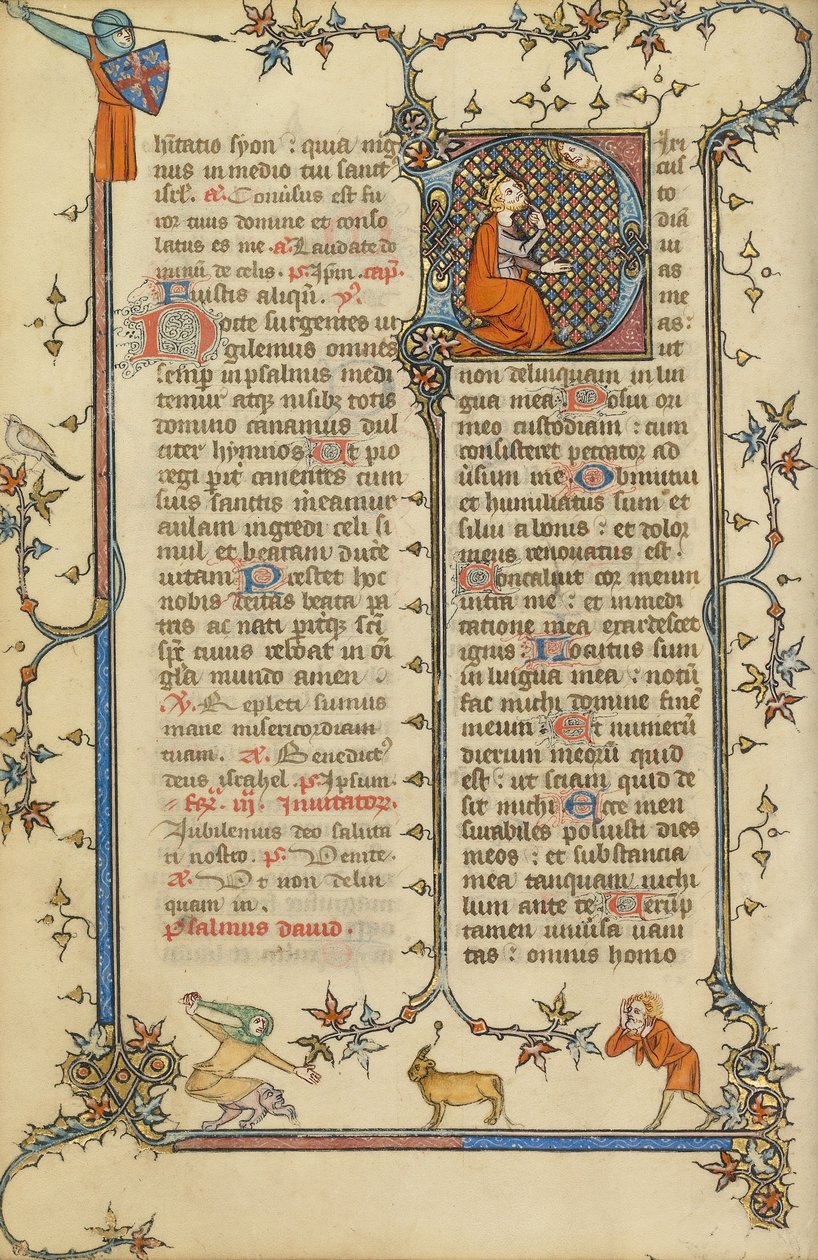 hītatio syon : quia mag
nus in medio tui sanct'
isrl. a. Conuersus est fu
ror tuus domine et conso
latus es me . a. Laudate do
minū de celis . ps. Ipm . cap.
Euistis aliqn̄ . ys.
Nocte surgentes ui
gilemus omnes
semp in psalmis medi
temur atq; nisibz totis
domino canamus dul
citer hymnos. Ut pio
regi pit' canentes cum
suis sanctis m̄eamur
aulam ingredi celi si
mul et beatam duc̄e
uitam Prestet hoc
nobis deitas beata pa
tris ac nati pitq; sc̄i
sp̄c cuius resonat in oī
gl̄a mundo amen .
V. Repleti sumus
mane misericordiam
tuam . a. Benedict'
deus israhel . ps. Ipsum .
fer. iij. Inuitator.
Iubilemus deo saluta
ri nostro . ps. Venite .
a. Ut non delin
quam in .
psalmus dauid .
Dixi
cus
to
diā
ui
as
me
as :
ut
non delinquam in lin
gua mea Posui ori
meo custodiam : cum
consisteret peccator ad
ūsum me . Obmutui
et humiliatus sum et
silui a bonis : et dolor
meus renouatus est .
Concaluit cor meum
intra me : et in medi
tatione mea exardescet
ignis : Locutus sum
in lingua mea : notū
fac michi domine finē
meum . Et numerū
dierum meorū quid
est : ut sciam quid de
sit michi Ecce men
surabiles posuisti dies
meos : et substancia
mea tanquam nichi
lum ante te . Uerūp
tamen uniūsa uani
tas : omnis homo